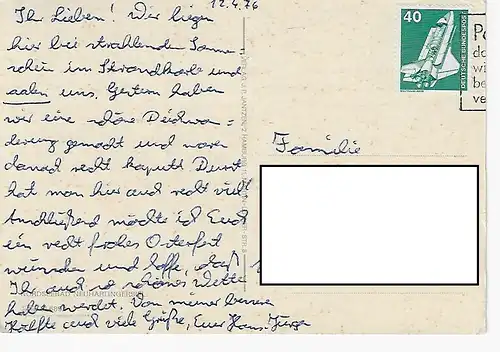 12.4.76
Ihr Lieben! Wir liegen
hier bei strahlenden Sonnen=
schein im Strandkorb und
aalen uns. Gestern haben
wir eine schöne Deichwan=
derung gemacht und waren
danach recht kaputt. Durst
hat man hier auch recht viel!
Anschließend möchte ich Euch
ein recht frohes Osterfest
wünschen und hoffe, daß
Ihr auch so schönes Wetter
haben werdet. Von meiner besseren
Hälfte und viele Grüße, Euer Hans-Jürge
Familie
40
DEUTSCHE BUNDESPOST
NORDSEEBAD NEUHARLINGERSIEL